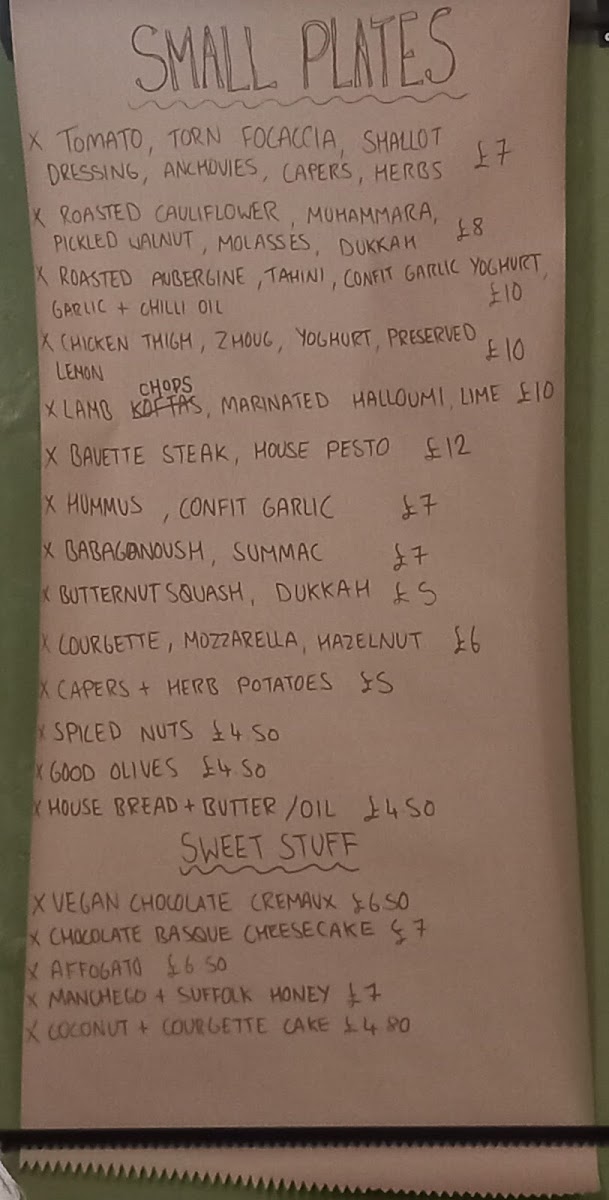 SMALL PLATES
X TOMATO, TORN FOCACCIA, SHALLOT
DRESSING, ANCHOVIES, CAPERS, HERBS £7
X ROASTED CAULIFLOWER, MUHAMMARA,
PICKLED WALNUT, MOLASSES, DUKKAH £8
X ROASTED AUBERGINE, TAHINI, CONFIT GARLIC YOGHURT,
GARLIC + CHILLI OIL £10
X CHICKEN THIGH, ZHOUG, YOGHURT, PRESERVED
LEMON £10
CHOPS
X LAMB KOFTAS, MARINATED HALLOUMI, LIME £10
X BAVETTE STEAK, HOUSE PESTO £12
X HUMMUS, CONFIT GARLIC £7
X BABAGANOUSH, SUMMAC £7
X BUTTERNUT SQUASH, DUKKAH £5
X COURGETTE, MOZZARELLA, HAZELNUT £6
X CAPERS + HERB POTATOES £5
X SPICED NUTS £4 50
X GOOD OLIVES £4 50
X HOUSE BREAD + BUTTER / OIL £4 50
SWEET STUFF
X VEGAN CHOCOLATE CREMAUX £6 50
X CHOCOLATE BASQUE CHEESECAKE £7
X AFFOGATO £6 50
X MANCHEGO + SUFFOLK HONEY £7
X COCONUT + COURGETTE CAKE £4 80